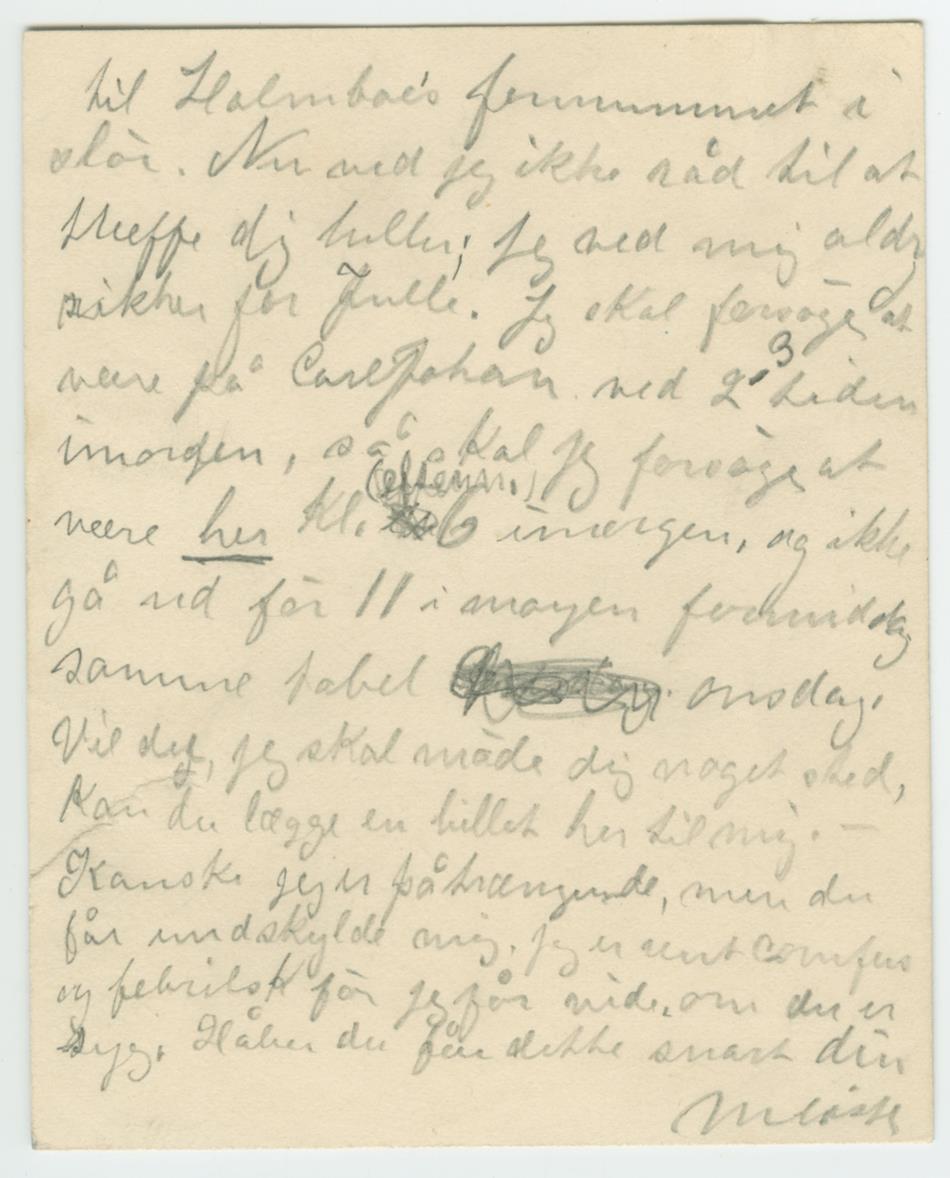 til Holmboe's formummet i
slör. Nu ved jeg ikke råd til at
træffe dig heller; jeg ved mig aldrig
sikker for Julle. Jeg skal forsöge at
være på Carl Johan ved 2, 3 tiden
imorgen, så skal jeg forsöge at
være her Kl. (efterm.) 6 imorgen, og ikke
gå ud för 11 i morgen formiddag
samme tabel onsdag.
Vil du, jeg skal möde dig noget sted,
Kan du lægge en billet her til mig. —
Kanske jeg er påtrængende, men du
får undskylde mig. jeg er rent comfus
og febrilsk för jeg får vide, om du er
syg. Håber du får dette snart din